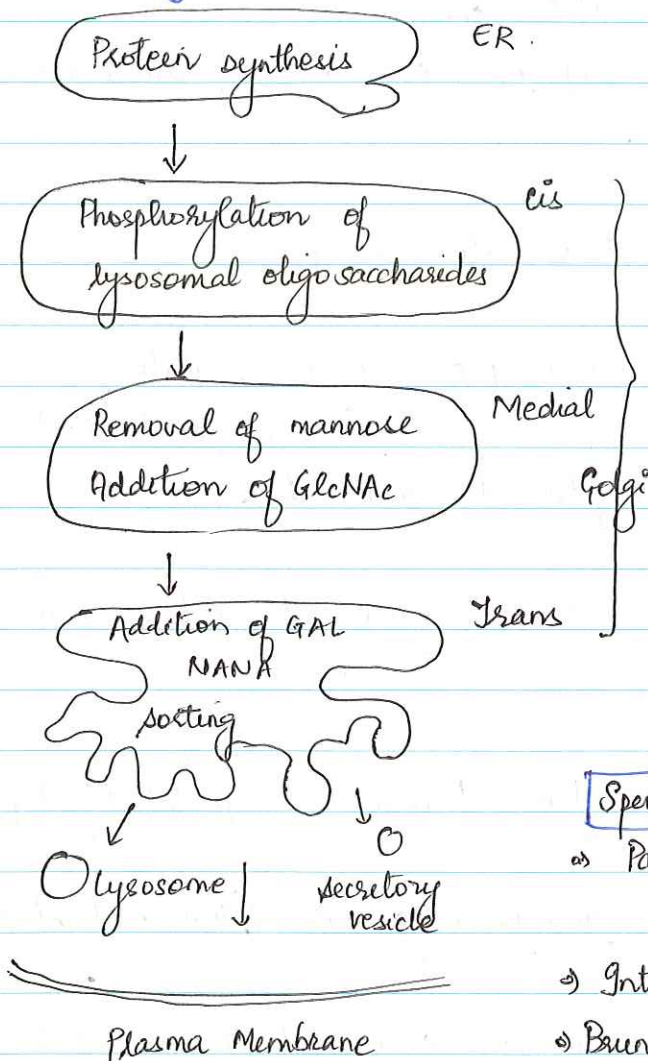 Protein synthesis
ER.
Phosphorylation of
lysosomal oligosaccharides
cis
Removal of mannose
Addition of GlcNAc
Medial
Golgi
Addition of GAL
NANA
sorting
Trans
Lysosome
secretory
vesicle
Plasma Membrane